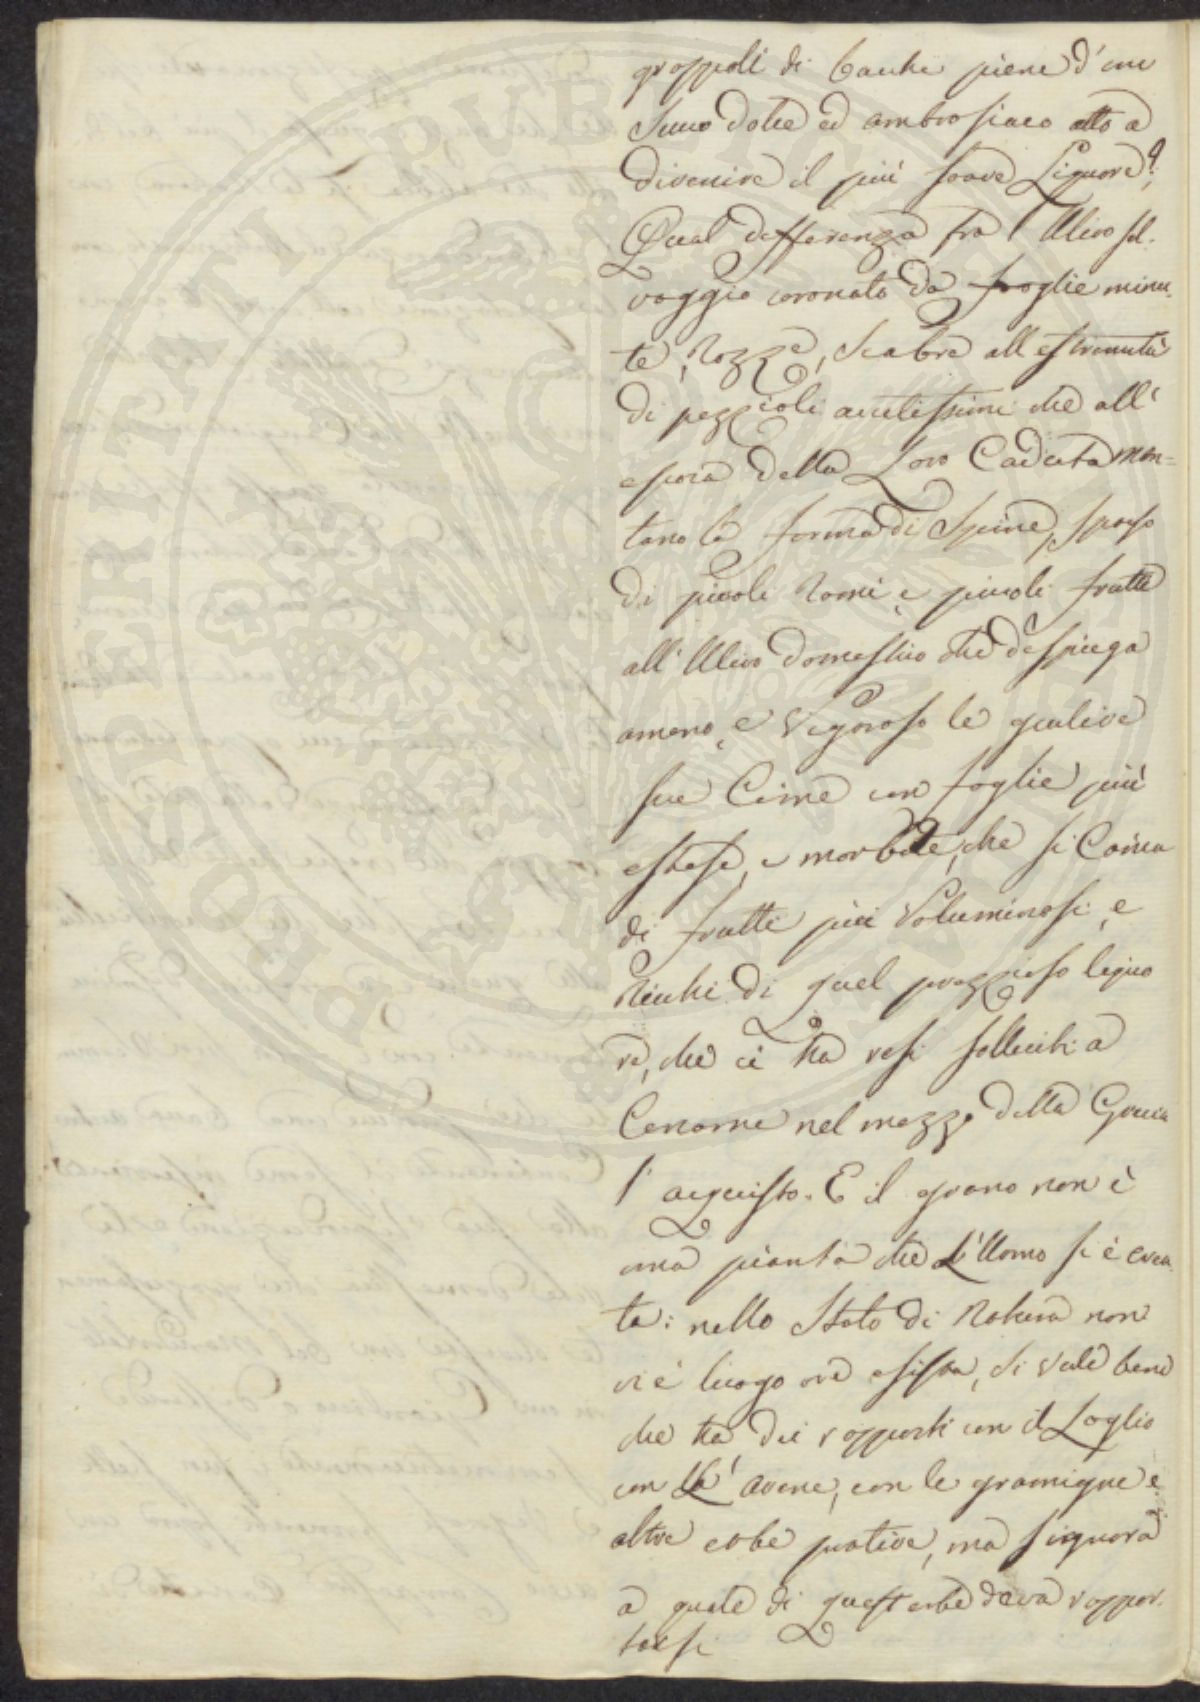 grappoli di bacche piene d'un
Succo dolce ed ambrosiaco atto a
divenire il più soave Liquore?
Qual differenza fra l'Ulivo sel-
vaggio coronato da foglie minu-
te, Rozze, Scabre all'estremità
di pezzioli acutissimi che all'
epoca della Loro Caduta men-
tano la forma di Spine, sparso
di piccoli Rami e piccoli frutti
all'Ulivo domestico che dispiega
ameno, e Vigoroso le giulive
sue Cime con foglie più
estese, e morbide, che si Carica
di frutti più Voluminosi, e
Ricchi di quel prezzioso liquo
re, che ci ha resi solleciti a
Cercarne nel mezzo della Grecia
l'acquisto. E il grano non è
una pianta che L'Uomo si è crea
ta: nello Stato di Natura non
vi è luogo ove esista, si vede bene
che ha dei rapporti con il Loglio
con L' avene, con le gramigne e
altre erbe prative, ma s'ignora
a quale di quest'erbe deva rappor-
tarsi
PROSPERITATI PUBLICAE